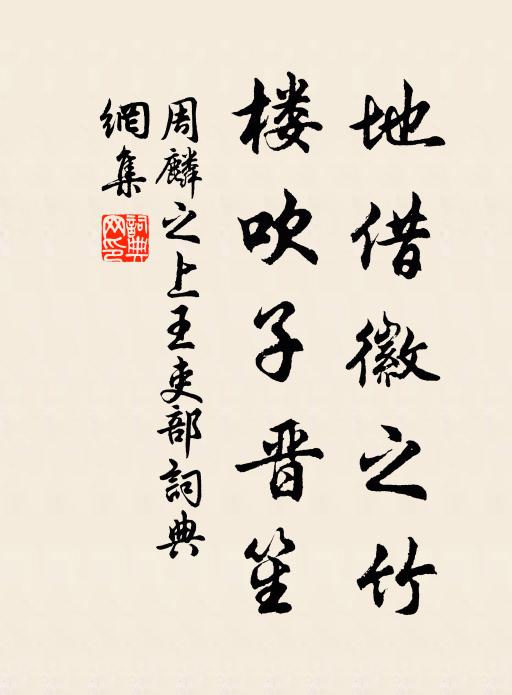 地借徽之竹
楼吹子晋笙
周麟之上王吏部詞典
網集
詞典
网印